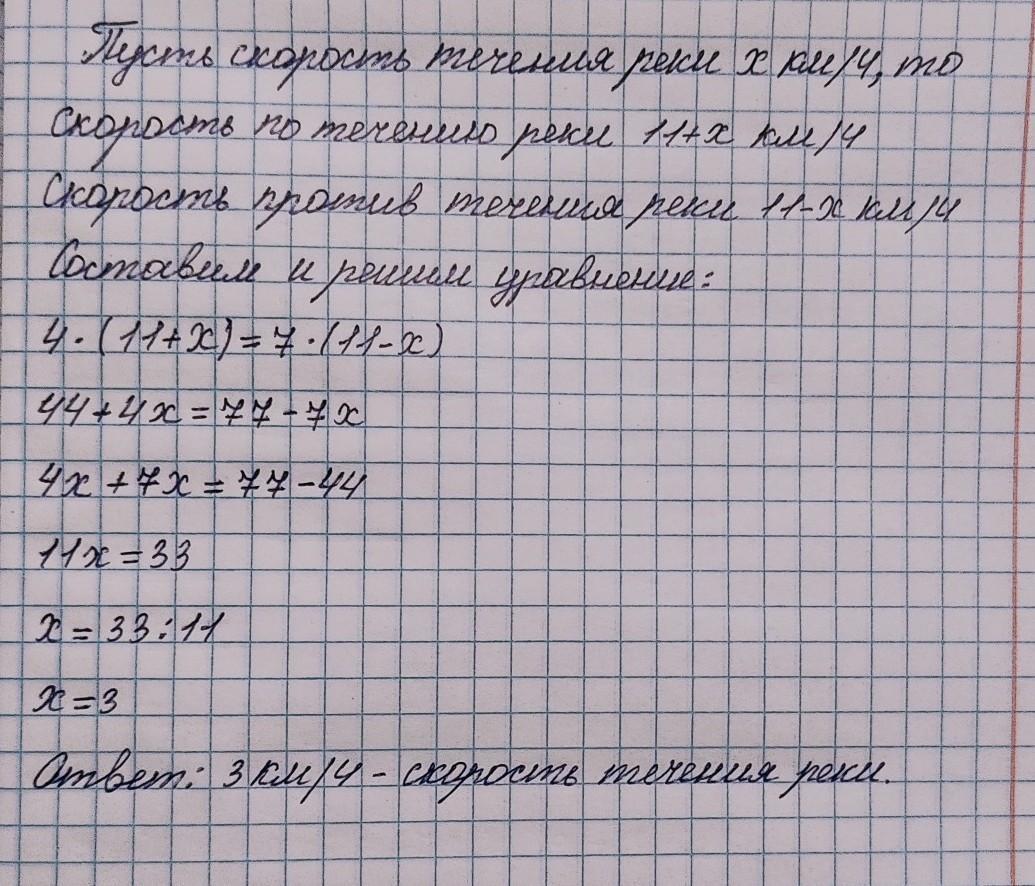 Пусть скорость течения реки х км/ч, то
скорость по течению реки 11+х км/ч
Скорость против течения реки 11-х км/ч
Составим и решим уравнение:
4·(11+х)=7·(11-х)
44+4х=77-7х
4х+7х=77-44
11х=33
х=33:11
х=3
Ответ: 3 км/ч - скорость течения реки.